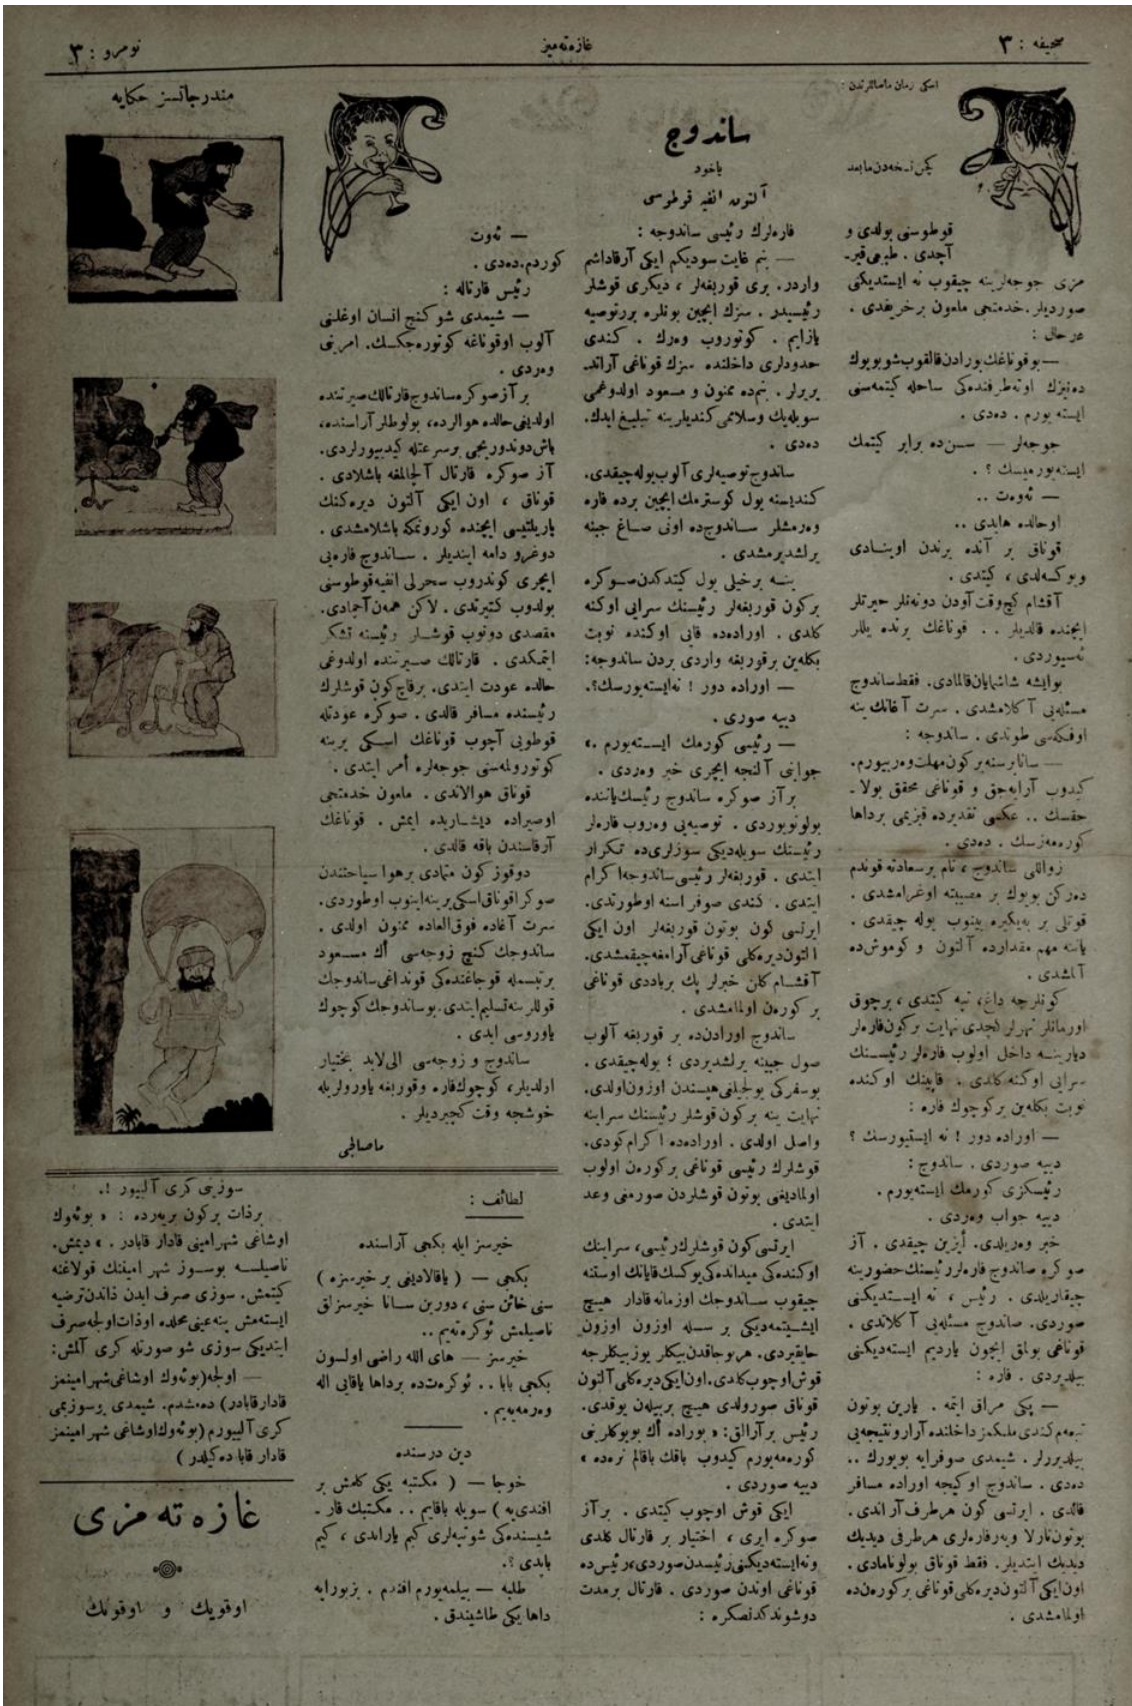 صحیفه : ٣
غازه‌ته‌میز
نومرو : ٣
اسکی زمان ماصاللرندن :
ساندوج
یاخود
آلتون انفیه قوطوسی
کچن نسخه‌دن مابعد
قوطوسنی بولدی و
آچدی . طبیعی قیر-
مزی جوجه‌لرینه چیقوب نه ایستدیکنی
صوردیلر . خدمتجی ملعون بر خریفدی .
در حال :
— بو قوناغك بورادن قالقوب شو بویوك
ده‌نیزك اوته‌طرفنده‌کی ساحله کیتمه‌سنی
ایسته‌یورم . ده‌دی .
جوجه‌لر — سن‌ده برابر کیتمك
ایسته‌یورمیسك ؟ .
— ئه‌وه‌ت ..
اوحالده هایدی ..
قوناق بر آنده یرندن اوینادی
ویوکسه‌لدی ، کیتدی .
آقشام کچ‌وقت آودن دونه‌نلر حیرتلر
ایچنده قالدیلر .. قوناغك یرنده یللر
ئه‌سیوردی .
بوایشه شاشمایان‌قالمادی . فقط ساندوج
مسئله‌یی آکلامشدی . سرت آغانك ینه
اوفکه‌سی طوندی . ساندوجه :
— سانا برسنه برکون مهلت وه‌رییورم .
کیدوب آرایه‌جق و قوناغی محقق بولا-
جقسك .. عکسی تقدیرده قیزیمی برداها
کوره‌مه‌زسك . ده‌دی .
زواللی ساندوج ، تام بر سعادته قوندم
ده‌رکن بویوك بر مصیبته اوغرامشدی .
قوتلی بر به‌یگیره بینوب یوله چیقدی .
یاننه مهم مقدارده آلتون و کوموش‌ده
آلمشدی .
کونلرجه داغ، تپه کیتدی ، برچوق
اورمانلر نهرلر کچدی نهایت برکون فاره‌لر
دیارینه داخل اولوب فاره‌لر رئیسنك
سرایی اوکنه کلدی . قاپینك اوکنده
نوبت بکله‌ین برکوچوك فاره :
— اوراده دور ! نه ایستیورسك ؟
دییه صوردی . ساندوج :
رئیسکزی کورمك ایسته‌یورم .
دییه جواب وه‌ردی .
خبر وه‌ریلدی . أیزین چیقدی . آز
صوکره صاندوج فاره‌لر رئیسنك حضورینه
چیقاریلدی . رئیس ، نه ایستدیکنی
صوردی. صاندوج مسئله‌یی آکلاندی .
قوناغی بولمق ایچون یاردیم ایسته‌دیکنی
بیلدیردی . فاره :
— پکی مراق ایتمه . یارین بوتون
تبعه‌م کندی ملکمز داخلنده آرار و نتیجه‌یی
بیلدیررلر . شیمدی صوفرایه بویورك ..
ده‌دی . ساندوج اوکیجه اوراده مسافر
قالدی . ایرتسی کون هرطرف آراندی .
بوتون تارلا ویه‌ر فاره‌لری هرطرفی دیدیك
دیدیك ایتدیلر . فقط قوناق بولونامادی .
اون‌ایکی آلتون‌دیره‌کلی قوناغی برکوره‌ن‌ده
اولمامشدی .
فاره‌لرك رئیسی ساندوجه :
— بنم غایت سودیکم ایکی آرقاداشم
واردر. بری قوربغه‌لر ، دیکری قوشلر
رئیسیدر . سزك ایچین بونلره بررتوصیه
یازایم . کوتوروب وه‌رك . کندی
حدودلری داخلنده سزك قوناغی آراند-
یریرلر . بنم‌ده ممنون و مسعود اولدوغمی
سویله‌یك وسلاممی کندیلرینه تبلیغ ایدك.
ده‌دی .
ساندوج توصیه‌لری آلوب یوله چیقدی.
کندیسنه یول کوسترمك ایچین برده فاره
وه‌رمشلر ساندوج‌ده اونی صاغ جیبنه
یرلشدیرمشدی .
ینه برخیلی یول کیتدکدن صوکره
برکون قوربغه‌لر رئیسنك سرایی اوکنه
کلدی . اوراده‌ده قاپی اوکنده نوبت
بکله‌ین برقوربغه واردی بردن ساندوجه:
— اوراده دور ! نه‌ایسته‌یورسك؟.
دییه صوری .
— رئیسی کورمك ایسته‌یورم .»
جوابنی آلنجه ایچری خبر وه‌ردی .
برآز صوکره ساندوج رئیسك‌یاننده
بولونویوردی . توصیه‌یی وه‌روب فاره‌لر
رئیسنك سویله‌دیکی سوزلری‌ده تکرار
ایتدی . قوربغه‌لر رئیسی ساندوجه اکرام
ایتدی . کندی صوفراسنه اوطورتدی.
ایرتسی کون بوتون قوربغه‌لر اون ایکی
آلتون‌دیره‌کلی قوناغی آرامغه‌چیقمشدی.
آقشام کلن خبرلر پك بربادی قوناغی
بر کوره‌ن اولمامشدی .
ساندوج اورادن‌ده بر قوربغه آلوب
صول جیبنه یرلشدیردی ؛ یوله‌چیقدی .
بوسفرکی یولجیلغی هپسندن اوزون‌اولدی.
نهایت ینه برکون قوشلر رئیسنك سراینه
واصل اولدی . اوراده‌ده اکرام‌کودی.
قوشلرك رئیسی قوناغی برکوره‌ن اولوب
اولمادیغی بوتون قوشلردن صورمغی وعد
ایتدی .
ایرتسی‌کون قوشلرك‌رئیسی، سراینك
اوکنده‌کی میدانده‌کی یوکسك‌قایانك اوستنه
چیقوب ساندوجك اوزمانه قادار هیچ
ایشیتمه‌دیکی بر سسله اوزون اوزون
حایقیردی. هربوجاقدن‌بیکلر یوز بیکلرجه
قوش‌اوچوب‌کلدی. اون‌ایکی‌دیره‌کلی آلتون
قوناق صورولدی هیچ بریبیلن یوقدی.
رئیس برآرالق: « بوراده أك بویوکلرینی
کوره‌مه‌یورم کیدوب باقك باقالم نره‌ده »
دییه صوردی .
ایکی قوش اوچوب کیتدی . برآز
صوکره ایری ، اختیار بر قارتال کلدی
ونه‌ایسته‌دیکنی‌رئیسدن‌صوردی،رئیس‌ده
قوناغی اوندن صوردی . قارتال برمدت
دوشوندکدنصکره :
— ئه‌وت
کوردم.ده‌دی .
رئیس قارتاله :
— شیمدی شو کنج انسان اوغلنی
آلوب اوقوناغه کوتوره‌جکسك. امرینی
وه‌ردی .
برآزصوکره‌ساندوج‌قارتالك‌صیرتنده
اولدیغی حالده هوالرده، بولوطلر آراسنده،
باش‌دوندوریجی برسرعتله کیدییورلردی.
آز صوکره قارتال آلچالمغه باشلادی .
قوناق ، اون ایکی آلتون دیره‌کنك
پاریلتیسی ایچنده کورونمکه باشلامشدی .
دوغرو دامه ایندیلر . ساندوج فاره‌یی
ایچری کوندروب سحرلی انفیه‌قوطوسنی
بولدوب کتیرتدی . لاکن همه‌ن‌آچمادی.
مقصدی دونوب قوشلر رئیسنه تشکر
ایتمکدی . قارتالك صیرتنده اولدوغی
حالده عودت ایتدی. برقاچ‌کون‌قوشلرك
رئیسنده مسافر قالدی . صوکره عودتله
قوطویی آچوب قوناغك اسکی یرینه
کوتورولمه‌سنی جوجه‌لره أمر ایتدی .
قوناق هوالاندی . ملعون خدمتجی
اوصیراده دیشاریده ایمش . قوناغك
آرقاسندن باقه قالدی .
دوقوز کون متمادی برهوا سیاحتندن
صوکرا قوناق‌اسکی‌یرینه‌اینوب اوطوردی.
سرت آغاده فوق‌العاده ممنون اولدی .
ساندوجك کنج زوجه‌سی أك مسعود
برتبسمله قوجاغنده‌کی قونداغی‌ساندوجك
قوللرینه‌تسلیم‌ایتدی.بوساندوجك‌کوچوك
یاوروسی ایدی .
ساندوج و زوجه‌سی الی‌لابد بختیار
اولدیلر، کوچوك‌فاره وقوربغه یاورولریله
خوشجه وقت کچیردیلر .
ماصالجی
لطائف :
خیرسز ایله بکجی آراسنده
بکجی — ( یاقالادیغی بر خیرسزه )
سنی خائن سنی ، دوربن سانا خیرسزلق
ناصیلمش ئوکره‌ته‌یم ..
خیرسز — های الله راضی اولسون
بکجی بابا .. ئوکره‌ت‌ده برداها یاقایی اله
وه‌رمه‌یه‌یم .
دین درسنده
خوجا — ( مکتبه یکی کلمش بر
افندی‌یه ) سویله باقایم .. مکتبك قار-
شیسنده‌کی شوتپه‌لری کیم یاراتدی ، کیم
یاپدی ؟.
طلبه — بیلمه‌یورم افندم . بزبورایه
داها یکی طاشیندق .
مندرجاتسز حکایه
سوزینی کری آلییور !.
برذات برکون بریه‌رده : « بوئه‌وك
اوشاغی شهرامینی قادار قابادر . » دیمش.
ناصیلسه بوسوز شهر امینك قولاغنه
کیتمش. سوزی صرف ایدن ذاتدن‌ترضیه
ایسته‌مش ینه‌عینی‌محلده اوذات‌اولجه‌صرف
ایتدیکی سوزی شو صورتله کری آلمش:
— اولجه(بوئه‌وك اوشاغی‌شهرامینمز
قادارقابادر) ده‌مشدم. شیمدی بوسوزیمی
کری آلییورم(بوئه‌وك‌اوشاغی شهرامینمز
قادار قابا ده‌کیلدر )
غازه ته مزی
اوقویك و اوقوتك